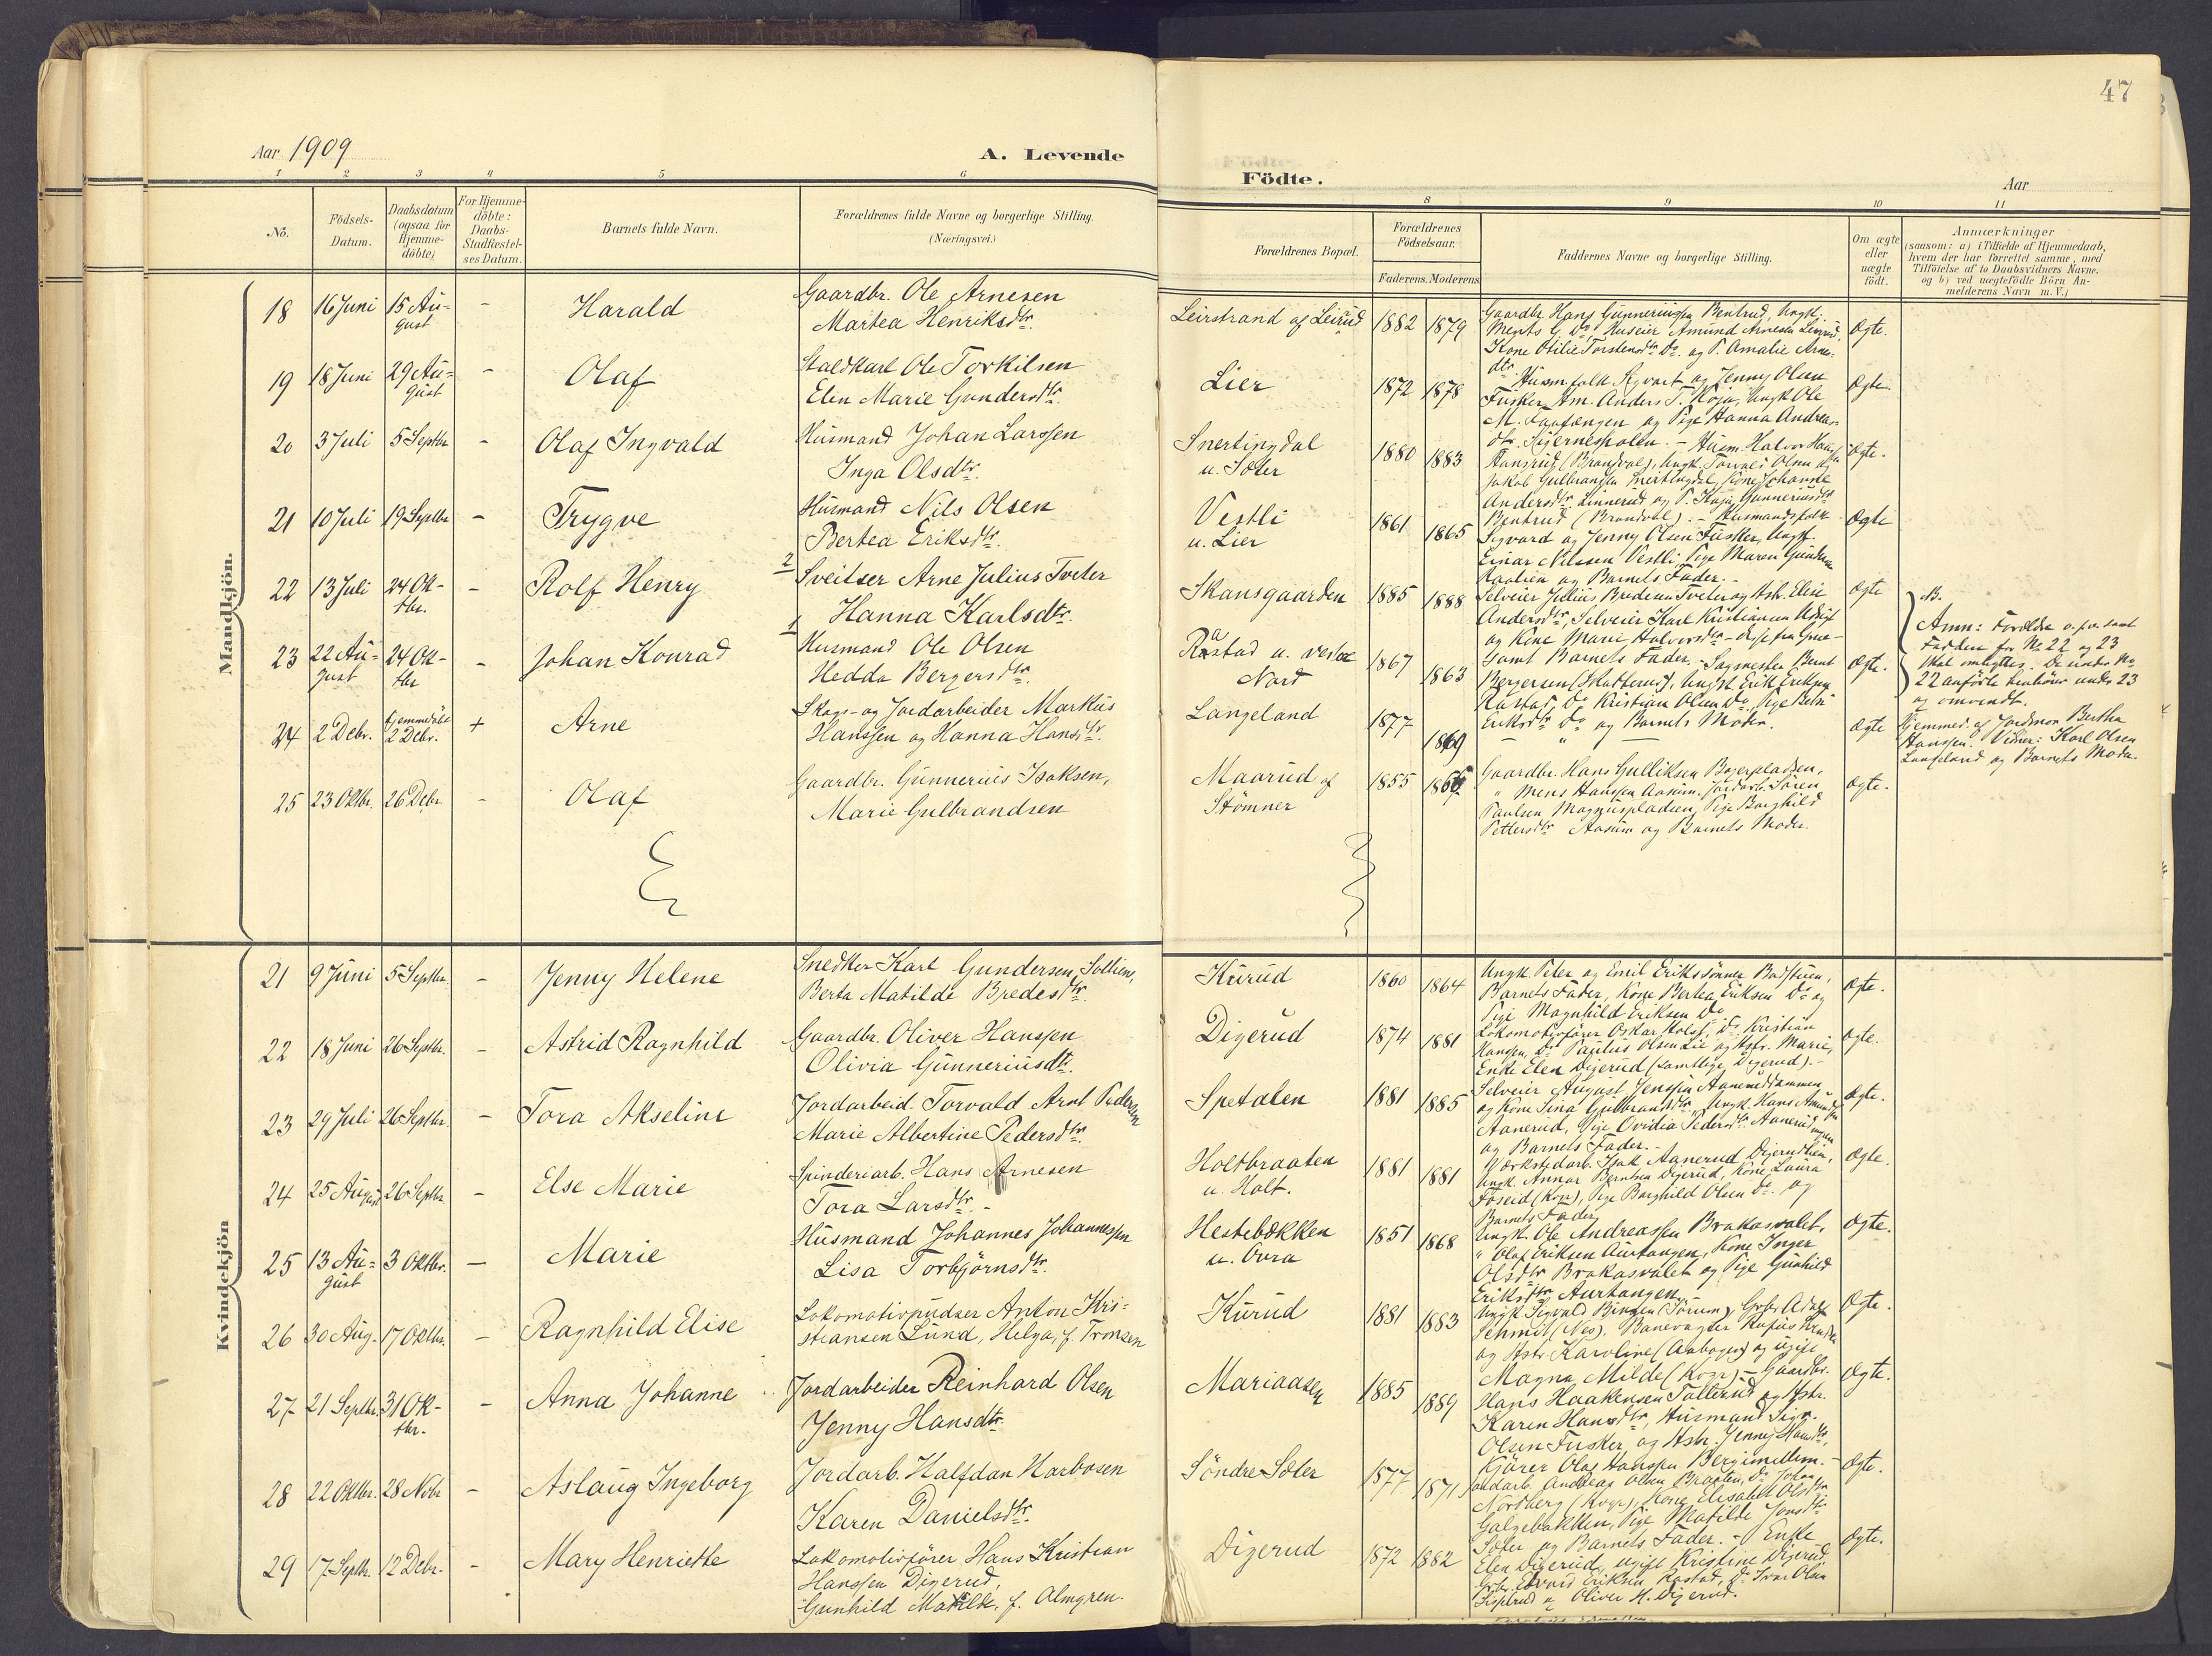 47
Aar 1909
A. Levende
Födte.
Aar
1 2 3 4 5 6 8 9 10 11
No.
Födsels-
Datum.
Daabsdatum
(ogsaa for
Hjemme-
döbte)
For Hjemme-
döbte:
Daabs-
Stadfæstel-
ses Datum.
Barnets fulde Navn.
Forældrenes fulde Navne og borgerlige Stilling.
(Næringsvei.)
Forældrenes Bopæl.
Forældrenes
Födselsaar.
Faderens. Moderens
Faddernes Navne og borgerlige Stilling.
Om ægte
eller
uægte
födt.
Anmærkninger
(saasom: a) i Tilfælde af Hjemmedaab,
hvem der har forrettet samme, med
Tilföielse af to Daabsvidners Navne.
og b) ved uægtefödte Börn An-
melderens Navn m. V.)
Mandkjön.
18 16 Juni 15 Au-
gust - Harald
Gaardbr. Ole Arnesen
Martea Henriksdtr.
Leirstrand af Leirud 1882 1879
Gaardbr. Hans Gunneriussen Bentrud, Ungk.
Ments G. Do Huseier Amund Arnesen
Kone Otilie Torstensdtr Do. og P. Amalie Arne-
dtr.
Ægte.
19 18 Juni 29 Au-
gust - Olaf
Staldkarl Ole Torkilsen
Elen Marie Gundersdtr.
Lier 1872 1878
Husm.folk Sigvart og Jenny Olsen
Fusker, Hm. Anders T. Ungk Ole
M. og Pige Hanna Andreas-
dtr.
Ægte.
20 3 Juli 5 Septbr - Olaf Ingvald
Husmand Johan Larssen
Inga Olsdtr.
Snertingdal
u. Soler 1880 1883
Husm. Halvor
(Brandval), Ungk. Torvald Olsen og
Jakob Gulbrandsen Snertingdal, Kone Johanne
Andersdtr. Linnerud og P. Kaja Gunneriusdtr
Bentrud (Brandval).
Ægte.
21 10 Juli 19 Septbr - Trygve
Husmand Nils Olsen
Bertea Eriksdtr.
Vestli
u. Lier 1861 1865
Husmandsfolk
Sigvard og Jenny Olsen Fusker, Ungk.
Einar Nilssen Vestli, Pige Maren
og Barnets Fader. -
Ægte
22 13 Juli 24 Ok-
tbr. - Rolf Henry
2 Sveitser Arne Julius Tveter
Hanna Karlsdtr.
Skansgaarden 1885 1888
Selveier Julius Bredesen Tveter og Hstr. Elise
Andersdtr, Selveier Karl Kristiansen
og Kone Marie Halvorsdtr -
samt Barnets Fader. -
Ægte
23 22 Au-
gust 24 Ok-
tbr - Johan Konrad
1 Husmand Ole Olsen
Hedda Bergersdtr.
Rastad u. vestre
Nord 1867 1863
Sagmester Bernt
Bergersen (Skatterud), Ungk. Erik Eriksen
Rastad, Do Kristian Olsen Do. Pige
Eriksdtr Do og Barnets Moder.
Ægte.
B.
Anm: Forældre
Faddere for No 22 og 23
skal ombyttes. De under No
22 anførte henhører under 23
og omvendt.
24 2 Debr. Hjemmedöbt
2 Debr. + Arne
Skogs- og Jordarbeider Markus
Hanssen og Hanna Hansdtr.
Langeland 1877 1869
Ægte
Hjemmed. af Jordmor Bertha
Hanssen. Vidner: Karl Olsen
Langeland og Barnets Moder.
25 23 Oktbr. 26 Debr. - Olaf
Gaardbr. Gunnerius Isaksen,
Marie Gulbrandsen
Maarud af
Stömner 1855
Gaardbr. Hans Gulliksen Bogerpladsen,
" Mens Hanssen Aasum. Jordarb. Sören
Paulsen Magnuspladsen, Pige Borghild
Pettersdtr Aasum og Barnets Moder.
Ægte.
Kvindekjön
21 9 Juni 5 Septbr. - Jenny Helene
Snedker Karl Gundersen Sollien,
Berta Matilde Bredesdtr.
Kurud 1860 1864
Ungk. Peter og Emil Erikssönner Badstuen,
Barnets Fader, Kone Bertea Eriksen Do og
Pige Magnhild Eriksen Do.
Ægte.
22 18 Juni 26 Septbr. - Astrid Ragnhild
Gaardbr. Oliver Hanssen
Olivia Gunneriusdtr.
Digerud 1874 1881
Lokomotivförer Oskar Holst, Do. Kristian
Hansen, Do Paulus Olsen Lie og Hstr. Marie,
Enke Elen Digerud (samtlige Digerud). -
Ægte.
23 29 Juli 26 Septbr. - Tora Akseline
Jordarbeid. Torvald Arnt Pedersen
Marie Albertine Pedersdtr.
Spetalen 1881 1885
Selveier August Jenssen Aaneruddammen
og Kone Sina Gulbrandsdtr, Ungk. Hans Amundsen
Aanerud, Pige Ovidia Pedersdtr. Aanerud
og Barnets Fader. -
Ægte.
24 25 August 26 Septbr - Else Marie
Spinderiarb. Hans Arnesen
Tora Larsdtr. -
Holtbraaten
u. Holt. 1881 1881
Værkstedarb. Isak Aanerud Digerudlien,
Ungk. Annar Berntsen Digerud, Kone Laura
Foseid (Kogr), Pige Borghild Olsen Do. og
Barnets Fader
Ægte.
25 13 Au-
gust 3 Oktbr. - Marie
Husmand Johannes Johannessen
Lisa Torbjörnsdtr.
Hestebækken
u. Ovra 1851 1868
Ungk. Ole Andreassen Brakasvalet,
" Olaf Eriksen Aurtangen, Kone Inger
Olsdtr Brakasvalet og Pige Gunhild
Eriksdtr Aurtangen.
Ægte.
26 30 Aug. 17 Oktbr. - Ragnhild Elise
Lokomotivpudser Anton Kri-
stiansen Lund, Helga, f. Tronsen
Kurud 1881 1883
Ungk. Sigvald (Sörum), Grbr.
Schmit (Nes), Banevogter Rufus
og Hstr. Karoline (Aabogen) og ugift
Magna Milde (Kogr). -
Ægte.
27 21 Septbr. 31 Ok-
tbr. - Anna Johanne
Jordarbeider Reinhard Olsen
Jenny Hansdtr.
Mariaasen 1885 1889
Gaardbr.
Hans Haakensen Tallerud og Hstr.
Karen Hansdtr, Husmand Sigv.
Olsen Fusker, og Hstr. Jenny Hansdtr,
Kjörer Olaf Hanssen
Ægte.
28 22 Oktbr. 28 Nobr - Aslaug Ingeborg
Jordarb. Halfdan Harbosen
Karen Danielsdtr.
Söndre Soler 1877 1871
Jordarb. Andreas Olsen Braaten, Do Johan
Nordberg (Kogr), Kone Elisabet Olsdtr
Galgebakken, Pige Matilde Jonsdtr
Soler og Barnets Fader. -
Ægte.
29 17 Septbr. 12 Debr. - Mary Henriette
Lokomotivförer Hans Kristian
Hanssen Digerud,
Gunhild Matilde, f. Almgren.
Digerud 1872 1882
Enke
Elen Digerud, ugift Kristine Digerud
Grbr. Edvard Eriksen Rastad, Do Ivar Olsen
og Oliver H. Digerud.
Ægte.